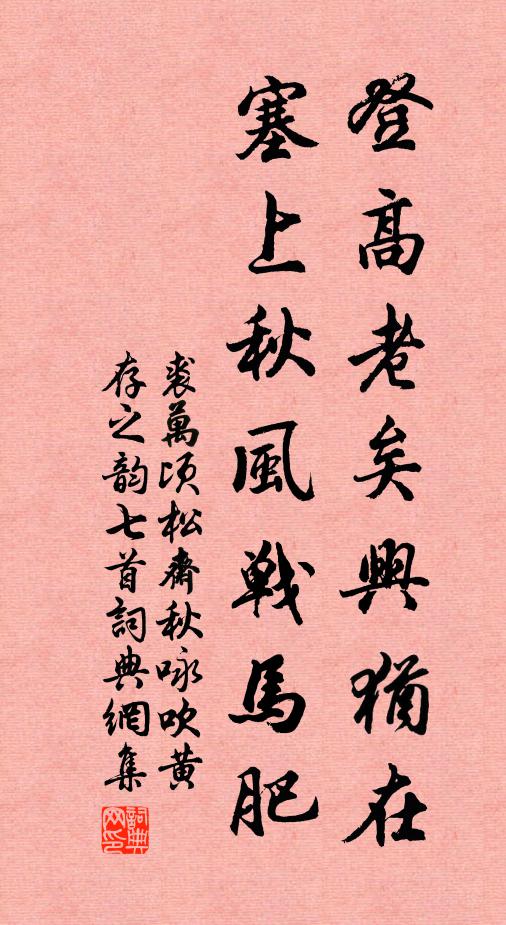 登高老矣興猶在
塞上秋風戰馬肥
裘萬頃松齋秋咏吹黄
存之韵七首詞典網集
詞典
网印